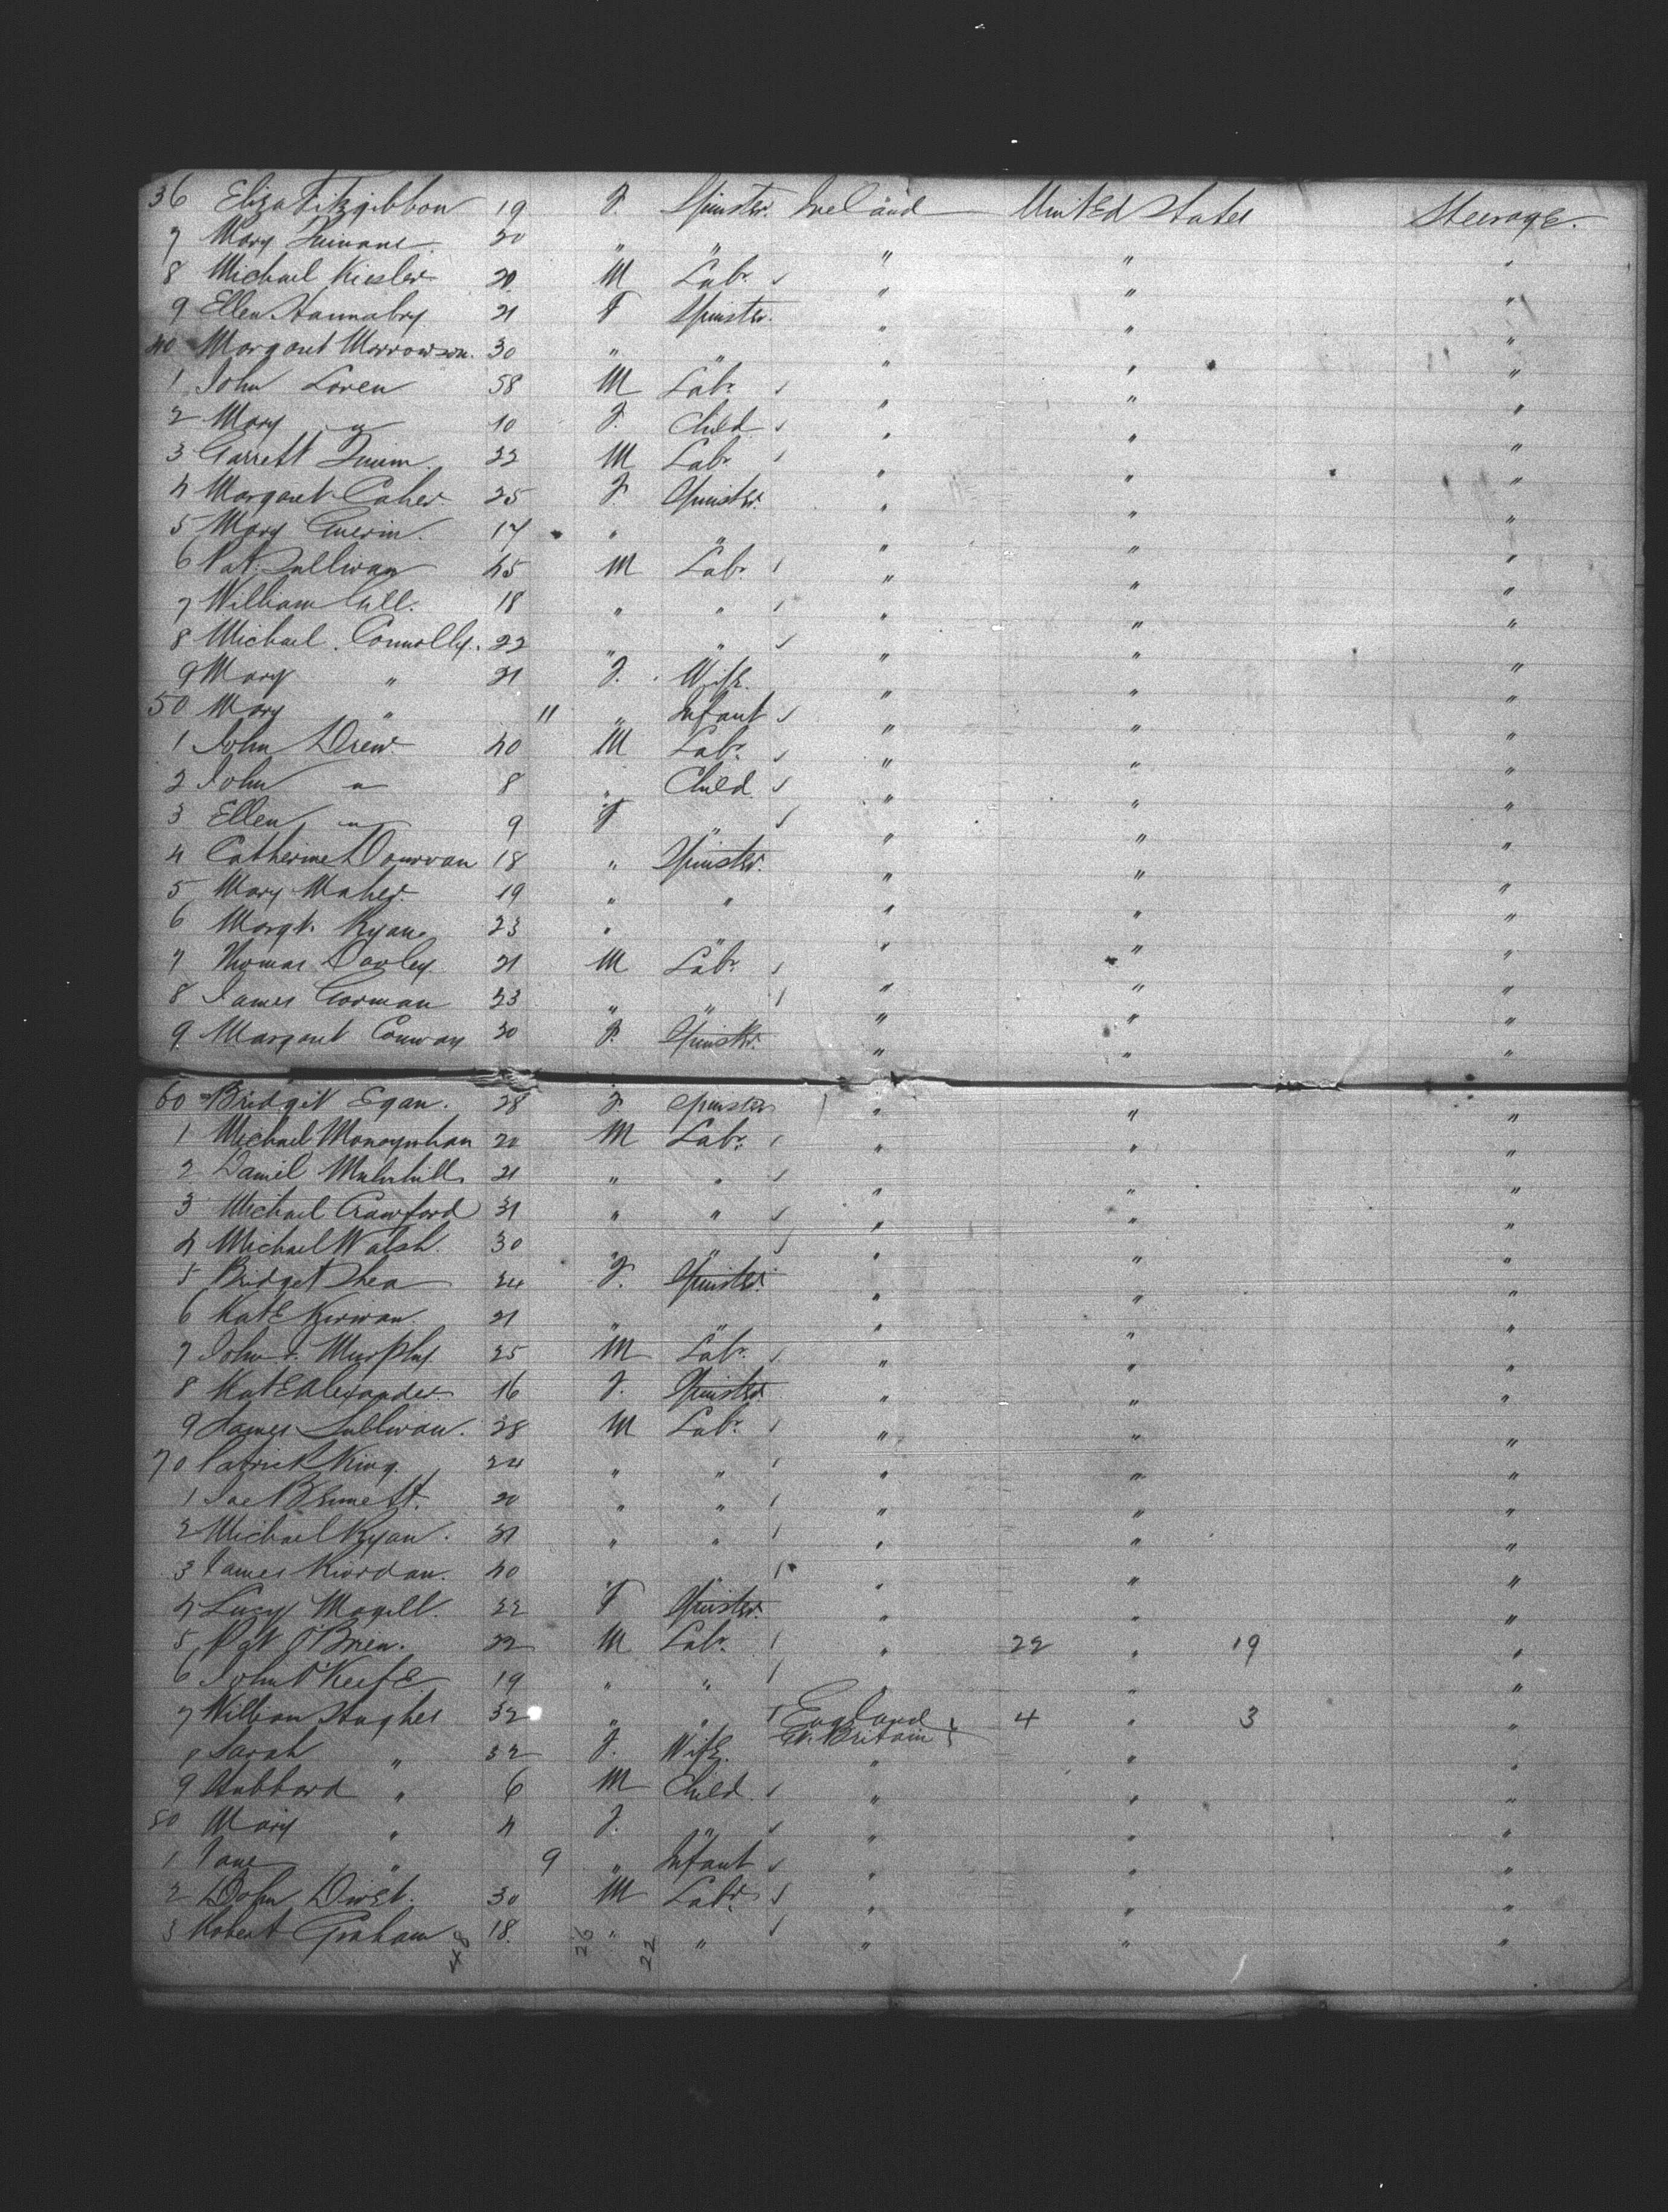 36 Eliza Fitzgibbon 19 F. Spinster. Ireland United States Steerage.
7 Mary 20 " " " " "
8 Michael 20 M Labr. " " "
9 Ellen 21 F Spinster. " " "
40 Margaret 30 " " " " "
1 John Loren 58 M Labr. " " "
2 Mary " 10 F. Child " " "
3 Garrett 22 M Labr " " "
4 Margaret Caher 25 F. Spinster. " " "
5 Mary Guerin. 17 " " " " "
6 Pat. Sullivan 45 M Labr. " " "
7 William 18 " " " " "
8 Michael Connolly. 22 " " " " "
9 Mary " 21 F. Wife. " " "
50 Mary " 11 " Infant " " "
1 John Drew 40 M Labr. " " "
2 John " 8 " Child " " "
3 Ellen " 9 F " " " "
4 Catherine Donovan 18 " Spinster. " " "
5 Mary Maher. 19 " " " " "
6 Margt. Ryan 23 " " " "
7 Thomas 21 M Labr. " " "
8 James Gorman 23 " " " " "
9 Margaret Conway 30 F. Spinster. " " "
60 Bridgit Egan. 28 F Spinster " " "
1 Michael Moneynhan 20 M Labr. " " "
2 Daniel 21 " " " " "
3 Michael Crawford 31 " " " " "
4 Michael Walsh. 30 " " " " "
5 Bridget Shea 24 F. Spinster. " " "
6 Kate Kirwan. 21 " " " " "
7 John Murphy 25 M Labr. " " "
8 Kate Alexander 16 F. Spinster " " "
9 James Sullivan. 28 M Labr. " " "
70 Patrick King. 24 " " " " "
1 20 " " " " "
2 Michael Ryan. 31 " " " " "
3 James Riordan. 40 " " " " "
4 Lucy Magill. 22 F Spinster. " " "
5 Pat O'Brien. 22 M Labr. " 22 " 19 "
6 John O'Keefe 19 " " " "
7 William Hughes 32 " " England 4 " 3 "
Gt. Britain
8 Sarah " 32 F. Wife. " " "
9 Hubbard " 6 M Child. " " "
80 Mary " 4 F. " " " "
1 Jane " 9 " Infant " " "
2 John 30 M Labr. " " "
3 Robert Graham 18. " " " " "
48 26 22